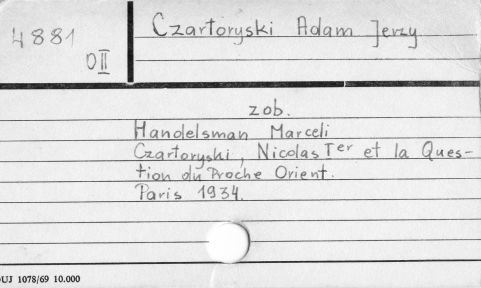 4881
DII
Czartoryski Adam Jerzy
zob.
Handelsman Marceli
Czartoryski, Nicolas Ier et la Ques-
tion du Proche Orient.
Paris 1934.
DUJ 1078/69 10.000